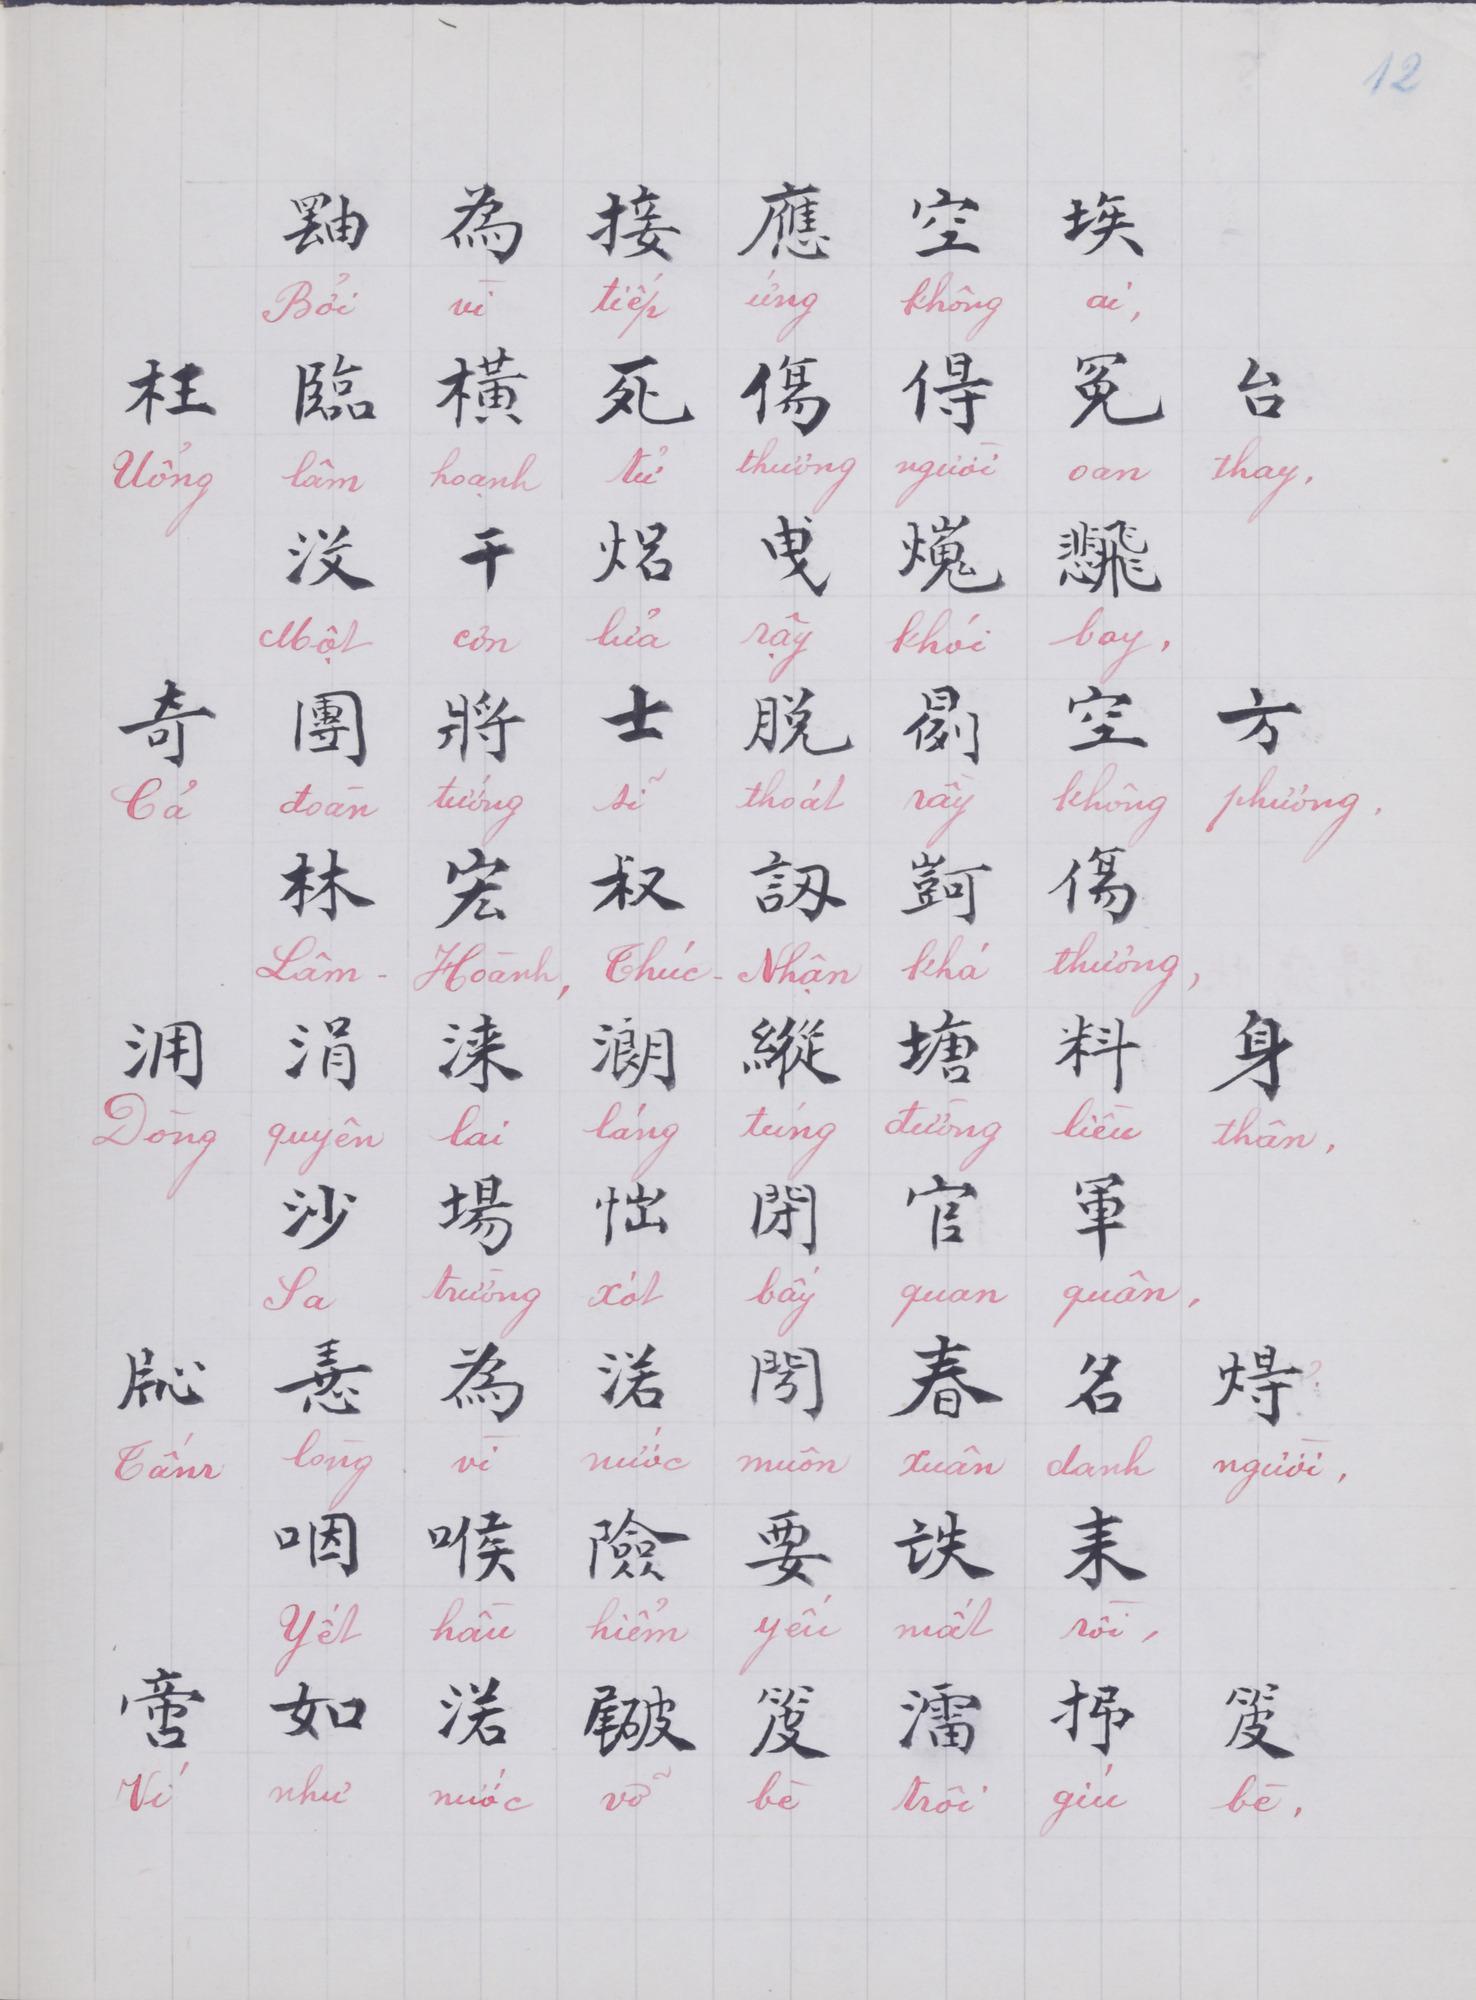 12
𤳸 為 接 應 空 埃
Bởi vì tiếp ứng không ai,
枉 臨 橫 死 傷 㝵 冤 台
Uổng lâm hoạnh tử thương người oan thay,
没 干 焒 曳 𤐡 𢒎
Một cơn lửa rậy khói bay,
奇 團 將 士 脫 𠉞 空 方
Cả đoàn tướng sĩ thoát rầy không phương,
林 宏 叔 訒 哿 傷
Lâm-Hoành, Thúc-Nhận khá thương,
洞 涓 淶 㴄 縱 塘 料 身
Dòng quyên lai láng túng đường liều thân,
沙 場 怵 閉 官 軍
Sa trường xót bấy quan quân,
𠨪 𢚸 為 渃 𨷈 春 名 㝵
Tấm lòng vì nước muôn xuân danh người,
咽 喉 險 要 𧿫 耒
Yết hầu hiểm yếu mất rồi,
啻 如 渃 𡱩 筏 㵢 𢪏 筏
Ví như nước vỡ bè trôi giú bè,